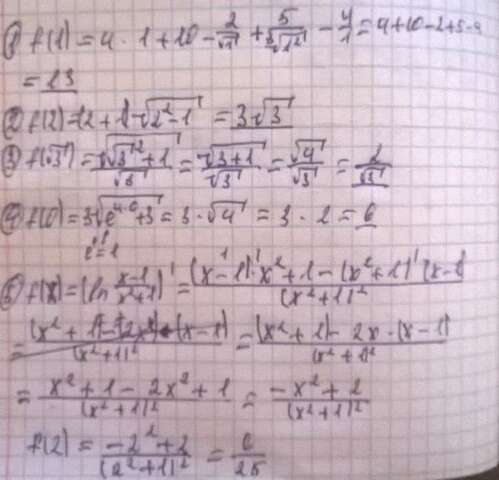 ① f(1) = 4 · 1 + 10 - 2/√1 + 5/∛1² - 4/1 = 4 + 10 - 2 + 5 - 4
= 13
② f(2) = (2 + 1) · √(2² - 1) = 3√3
③ f(√3) = √(√3² + 1)/√3 = √(3 + 1)/√3 = √4/√3 = 2/√3
④ f(0) = 3√(e^(4·0) + 3) = 3 · √4 = 3 · 2 = 6
e⁰ = 1
⑤ f(x) = (ln (x-1)/(x²+1))' = ((x-1)' · x² + 1 - (x² + 1)' (x-1))/(x² + 1)²
= ((x² + 1) - 2x · (x-1))/(x²+1)² = ((x² + 1) - 2x · (x-1))/(x² + 1)²
= (x² + 1 - 2x² + 1)/(x² + 1)² = (-x² + 2)/(x² + 1)²
f(2) = (-2² + 2)/(2² + 1)² = 6/25